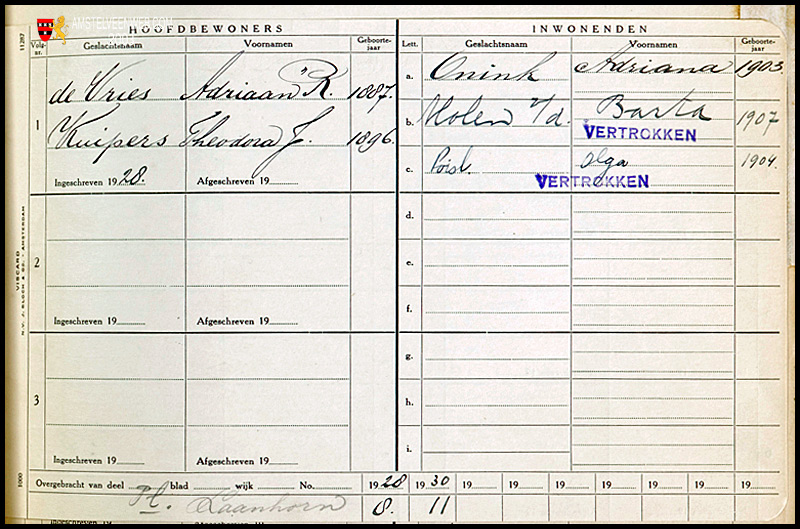 AMSTELVEENWEB.COM
HOOFDBEWONERS
INWONENDEN
Volg-nr.
Geslachtsnaam
Voornamen
Geboorte-jaar
Lett.
Geslachtsnaam
Voornamen
Geboorte-jaar
11287
1
de Vries Adriaan R. 1887.
Kuipers Theodora J. 1896.
Ingeschreven 1928.
Afgeschreven 19
a. Onink Adriana 1903.
b. Molen v/d. Barta 1907
VERTROKKEN
c. Olga 1904.
VERTROKKEN
d.
e.
f.
2
Ingeschreven 19
Afgeschreven 19
g.
h.
i.
3
Ingeschreven 19
Afgeschreven 19
VISCARD
N.V. J. BLOCH & CO. - AMSTERDAM
1000
Overgebracht van deel blad wijk No. 1928 1930 19 19 19 19 19 19
Pl. Laanhorn 8. 11
Ingeschreven 19
Afgeschreven 19